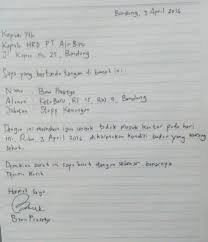 Bandung, 3 April 2016
Kepada Yth
Kepala HRD PT Air Biru
Jl Kopo No. 25, Bandung
Saya yang bertanda tangan di bawah ini:
Nama : Bima Prasetyo
Alamat : Kota Baru, RT 15, RW 9, Bandung
Jabatan : Staff Keuangan
Dengan ini memohon izin untuk tidak masuk kantor pada hari
ini, Rabu, 3 April 2016 dikarenakan kondisi badan yang kurang
sehat.
Demikian surat ini saya buat dengan sebenar-benarnya.
Terima Kasih
Hormat Saya
Bima Prasetyo